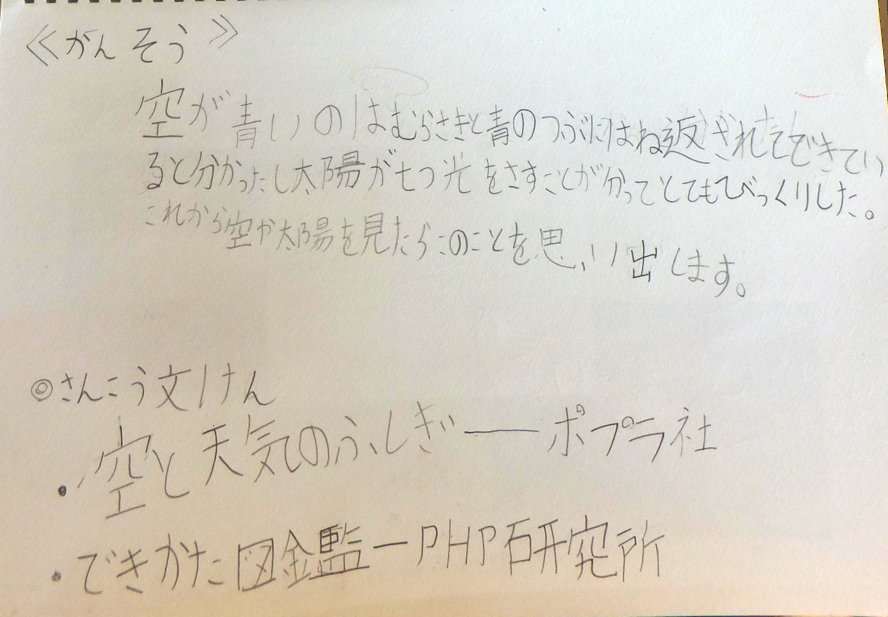 ≪がんそう≫
空が青いのはむらさきと青のつぶにはね返されてできてい
ると分かったし太陽が七つ光をさすことが分ってとてもびっくりした。
これから空か太陽を見たらこのことを思い出します。
◎さんこう文けん
・空と天気のふしぎ――ポプラ社
・できかた図鑑―PHP研究所